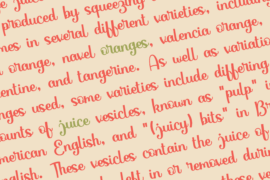 e juice
produced by squeezing
mes in several different varieties, includin
orange, navel oranges, valencia orange,
entine, and tangerine. As well as variatio
anges used, some varieties include differing
ounts of juice vesicles, known as "pulp" i
American English, and "(juicy) bits" in Br
English. These vesicles contain the juice of
left in or removed during
these